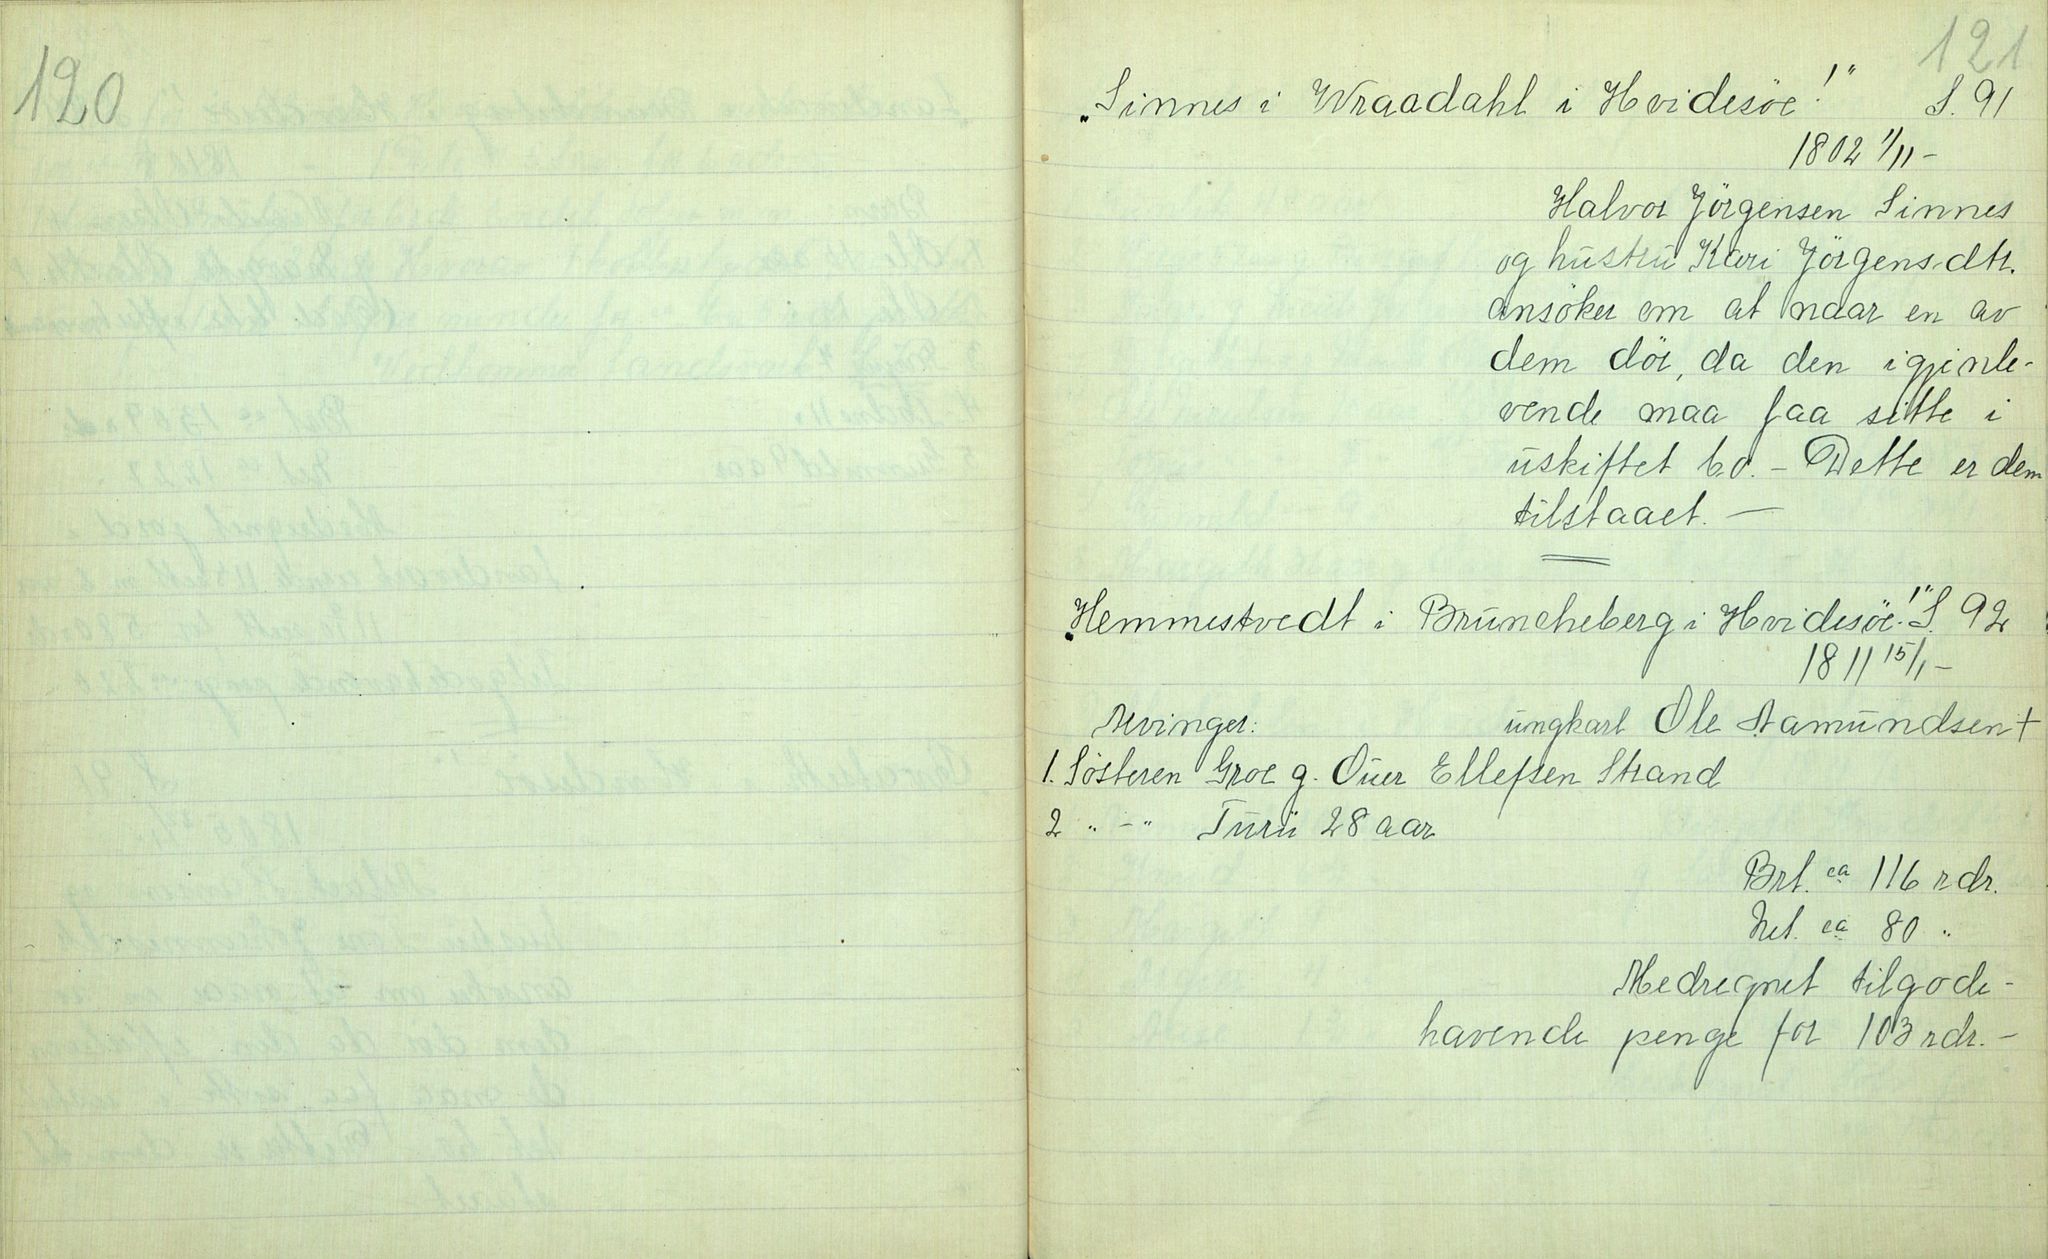 120
121
„Sinnes i Wraadahl i Hvidesöe!" S. 91
1802 1/11 –
Halvor Jörgensen Sinnes
og hustru Kari Jörgensdtr.
ansöker om at naar en av
dem dör, da den igjenle-
vende maa faa sitte i
uskiftet bo. – Dette er dem
tilstaaet. —
„Hemmestvedt i Bruncheberg i Hvidesöe!" S. 92
1811 15/1 –
Arvinger: ungkarl Ole Aamundsen +
1. Sösteren Groe g. Ouer Ellefsen Strand
2 " - " Turü 28 aar
Brt. ca 116 rdr.
Net. ca 80 "
Medregnet tilgode-
havende penge for 103 rdr. –